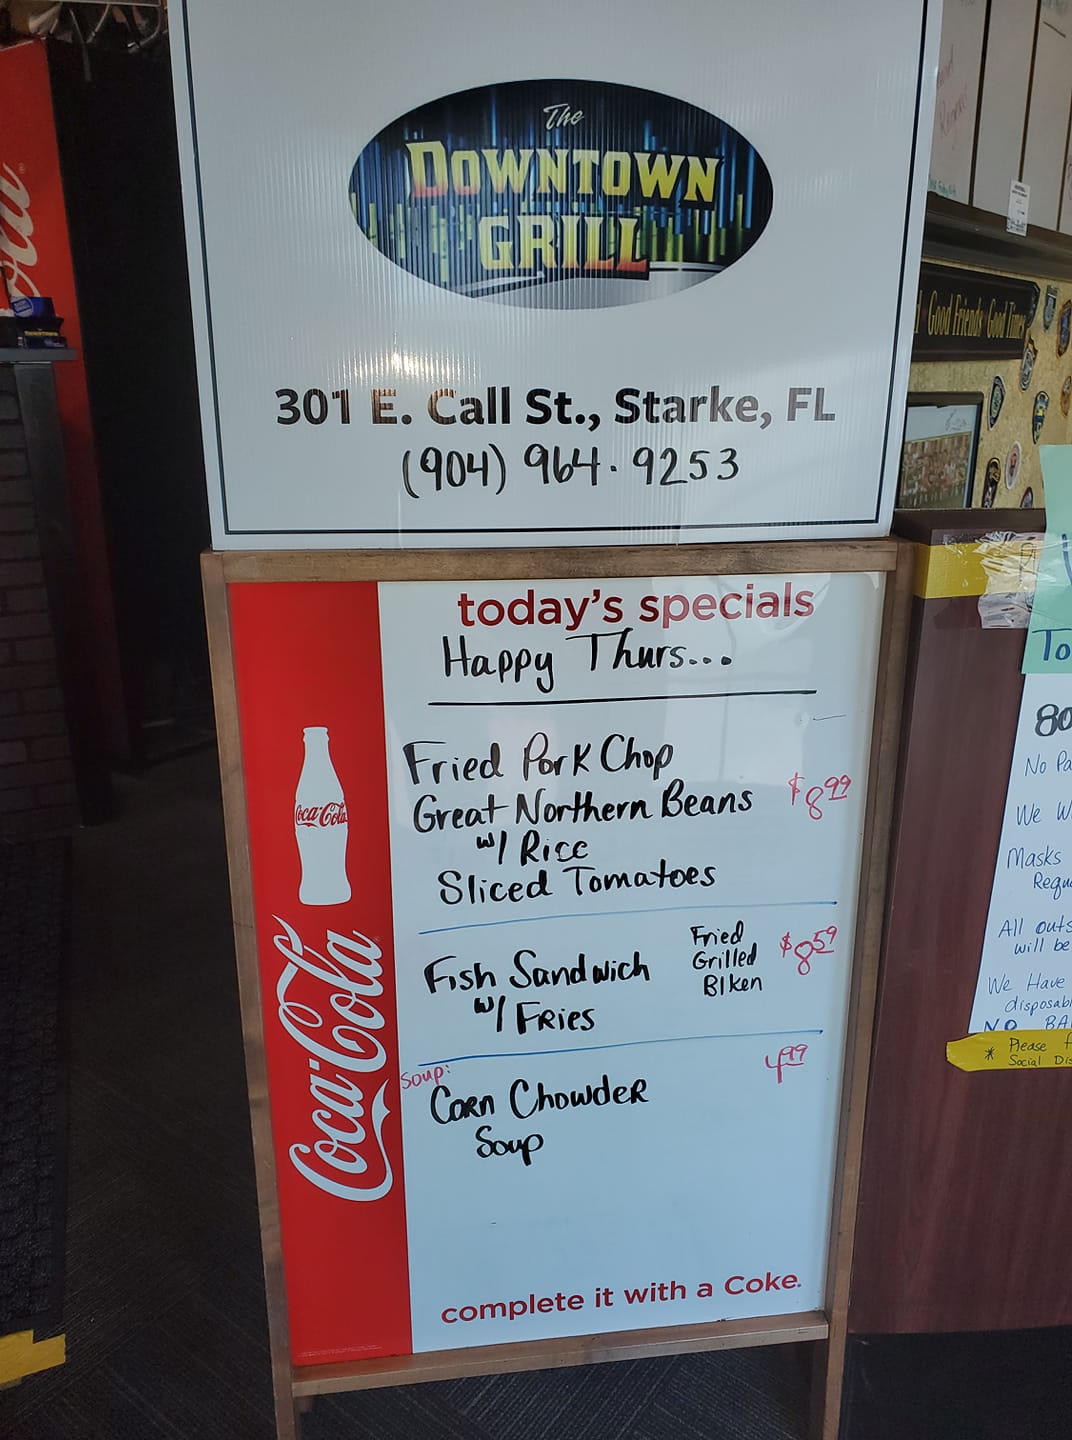 The
DOWNTOWN
GRILL
301 E. Call St., Starke, FL
(904) 964.9253
today's specials
Happy Thurs...
Fried Pork Chop
Great Northern Beans $8.99
w/ Rice
Sliced Tomatoes
Fish Sandwich Fried Grilled Blken $8.59
w/ Fries
Soup: 4.99
Corn Chowder
Soup
complete it with a Coke.
Coca-Cola
Coca-Cola
Good Friends Good Times
To
80
No Pa
We W
Masks
Requ
All outs
will be
We Have
disposab
NO BA
* Please f
Social Dis
DOWNTOWN